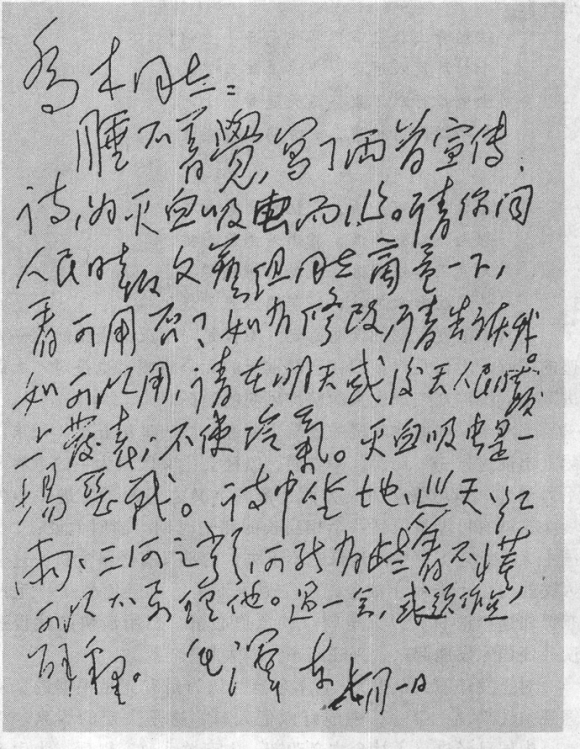 乔木同志：
睡不着覺，寫了两首宣传
诗，为灭血吸虫而作。请你同
人民日报文藝组同志商量一下，
看可用否？如有修改，请告诉我。
如可以用，请在明天或后天人民日报
上發表，不使冷氣。灭血吸虫是一
場恶战。诗中坐地、巡天、红
雨、三河之类，可能有些人看不懂，
可以不要理他。过一会，或须作点
解释。 毛澤东 七月一日